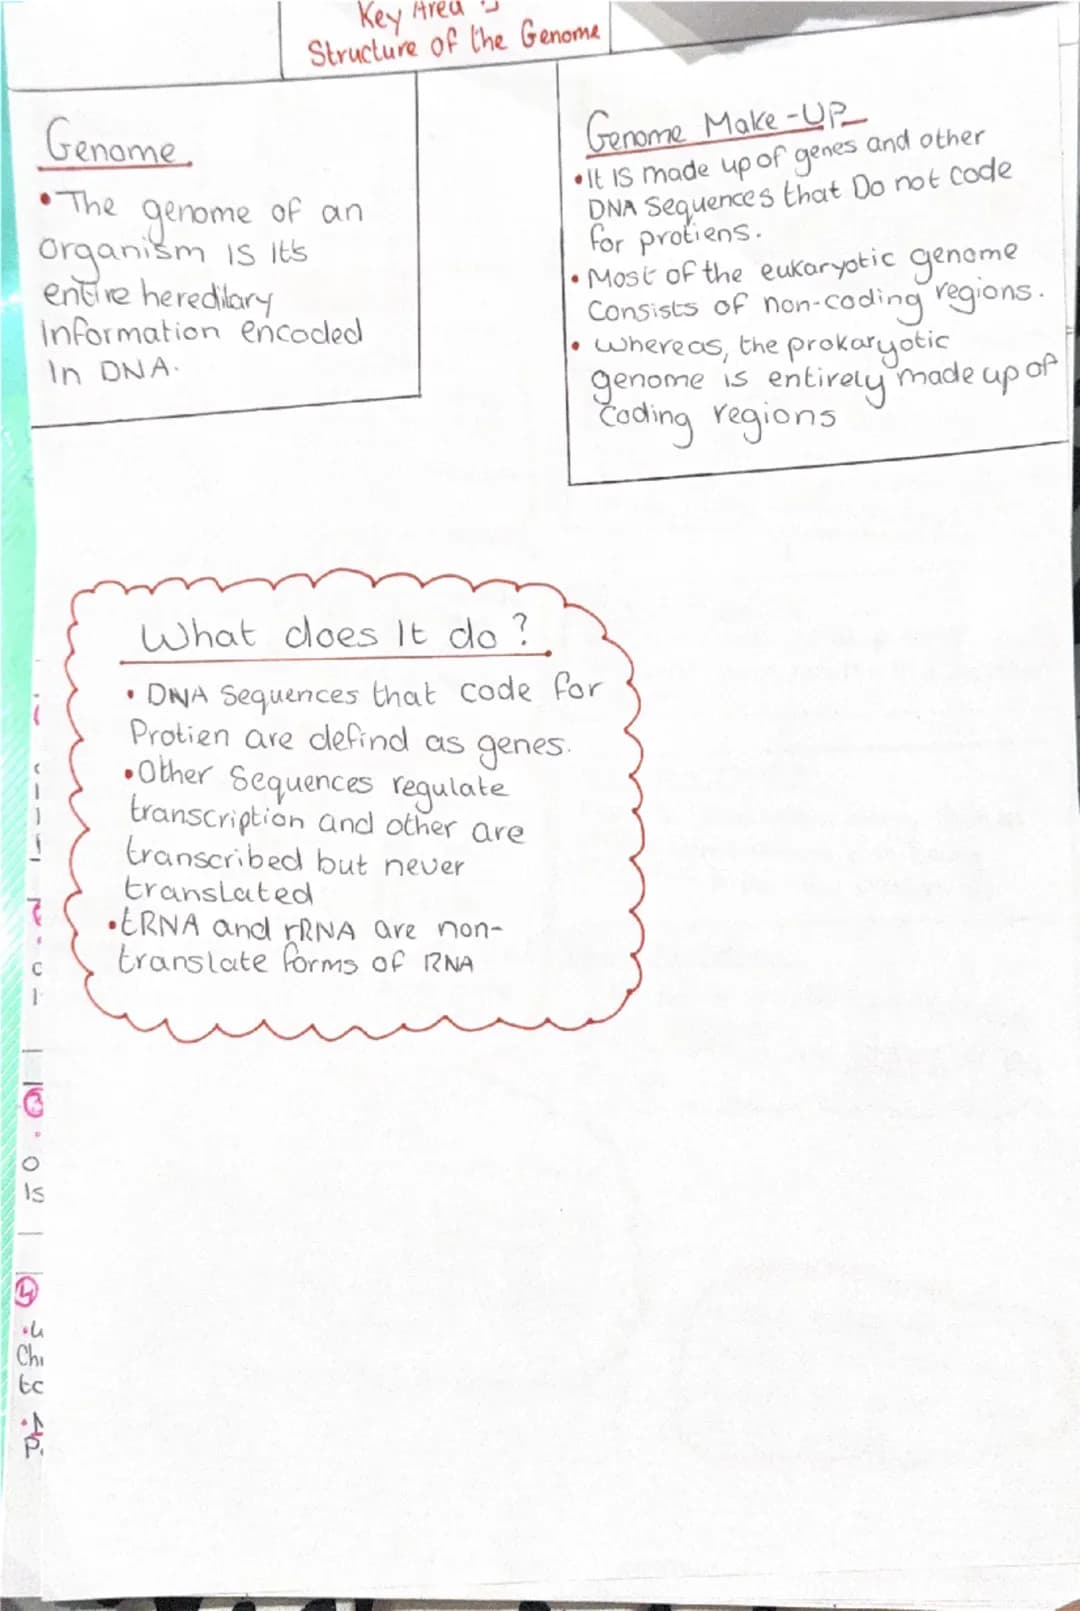 Key Area 5
Structure of the Genome
Genome
• The genome of an
organism is it's
entire hereditary
Information encoded
In DNA.
Genome Make-UP
• It is made up of genes and other
DNA Sequences that Do not code
for protiens.
• Most of the eukaryotic genome
Consists of non-coding regions.
• whereas, the prokaryotic
genome is entirely made up of
Coding regions
What does It do?
• DNA Sequences that code for
Protien are defind as genes.
• Other Sequences regulate
transcription and other are
transcribed but never
translated
• tRNA and rRNA are non-
translate forms of RNA